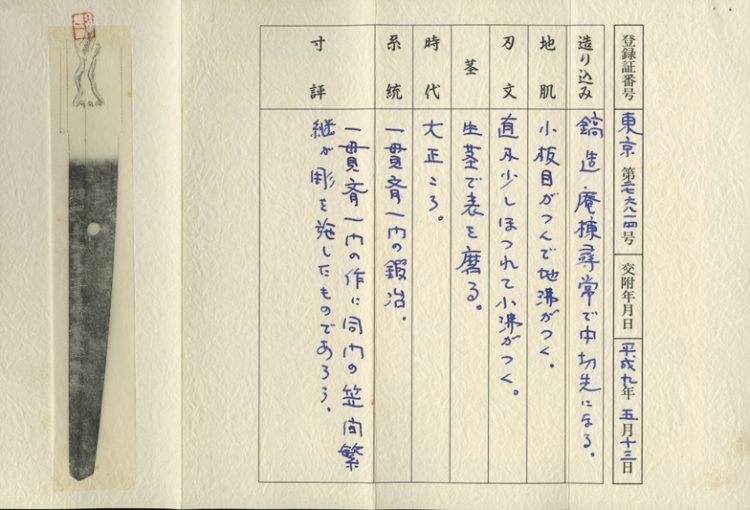 登録証番号 東京 第二七六八一四号 交附年月日 平成九年 五月十三日
造り込み 鎬造庵棟尋常で中切先になる。
地肌 小板目がつんで地沸がつく。
刃文 直刃少しほつれて小沸がつく。
茎 生茎で表を磨る。
時代 大正ころ。
系統 一貫斉一門の鍛冶.
寸評 一貫斉一門の作に同門の笠間繁
継が彫を施したものであろう.